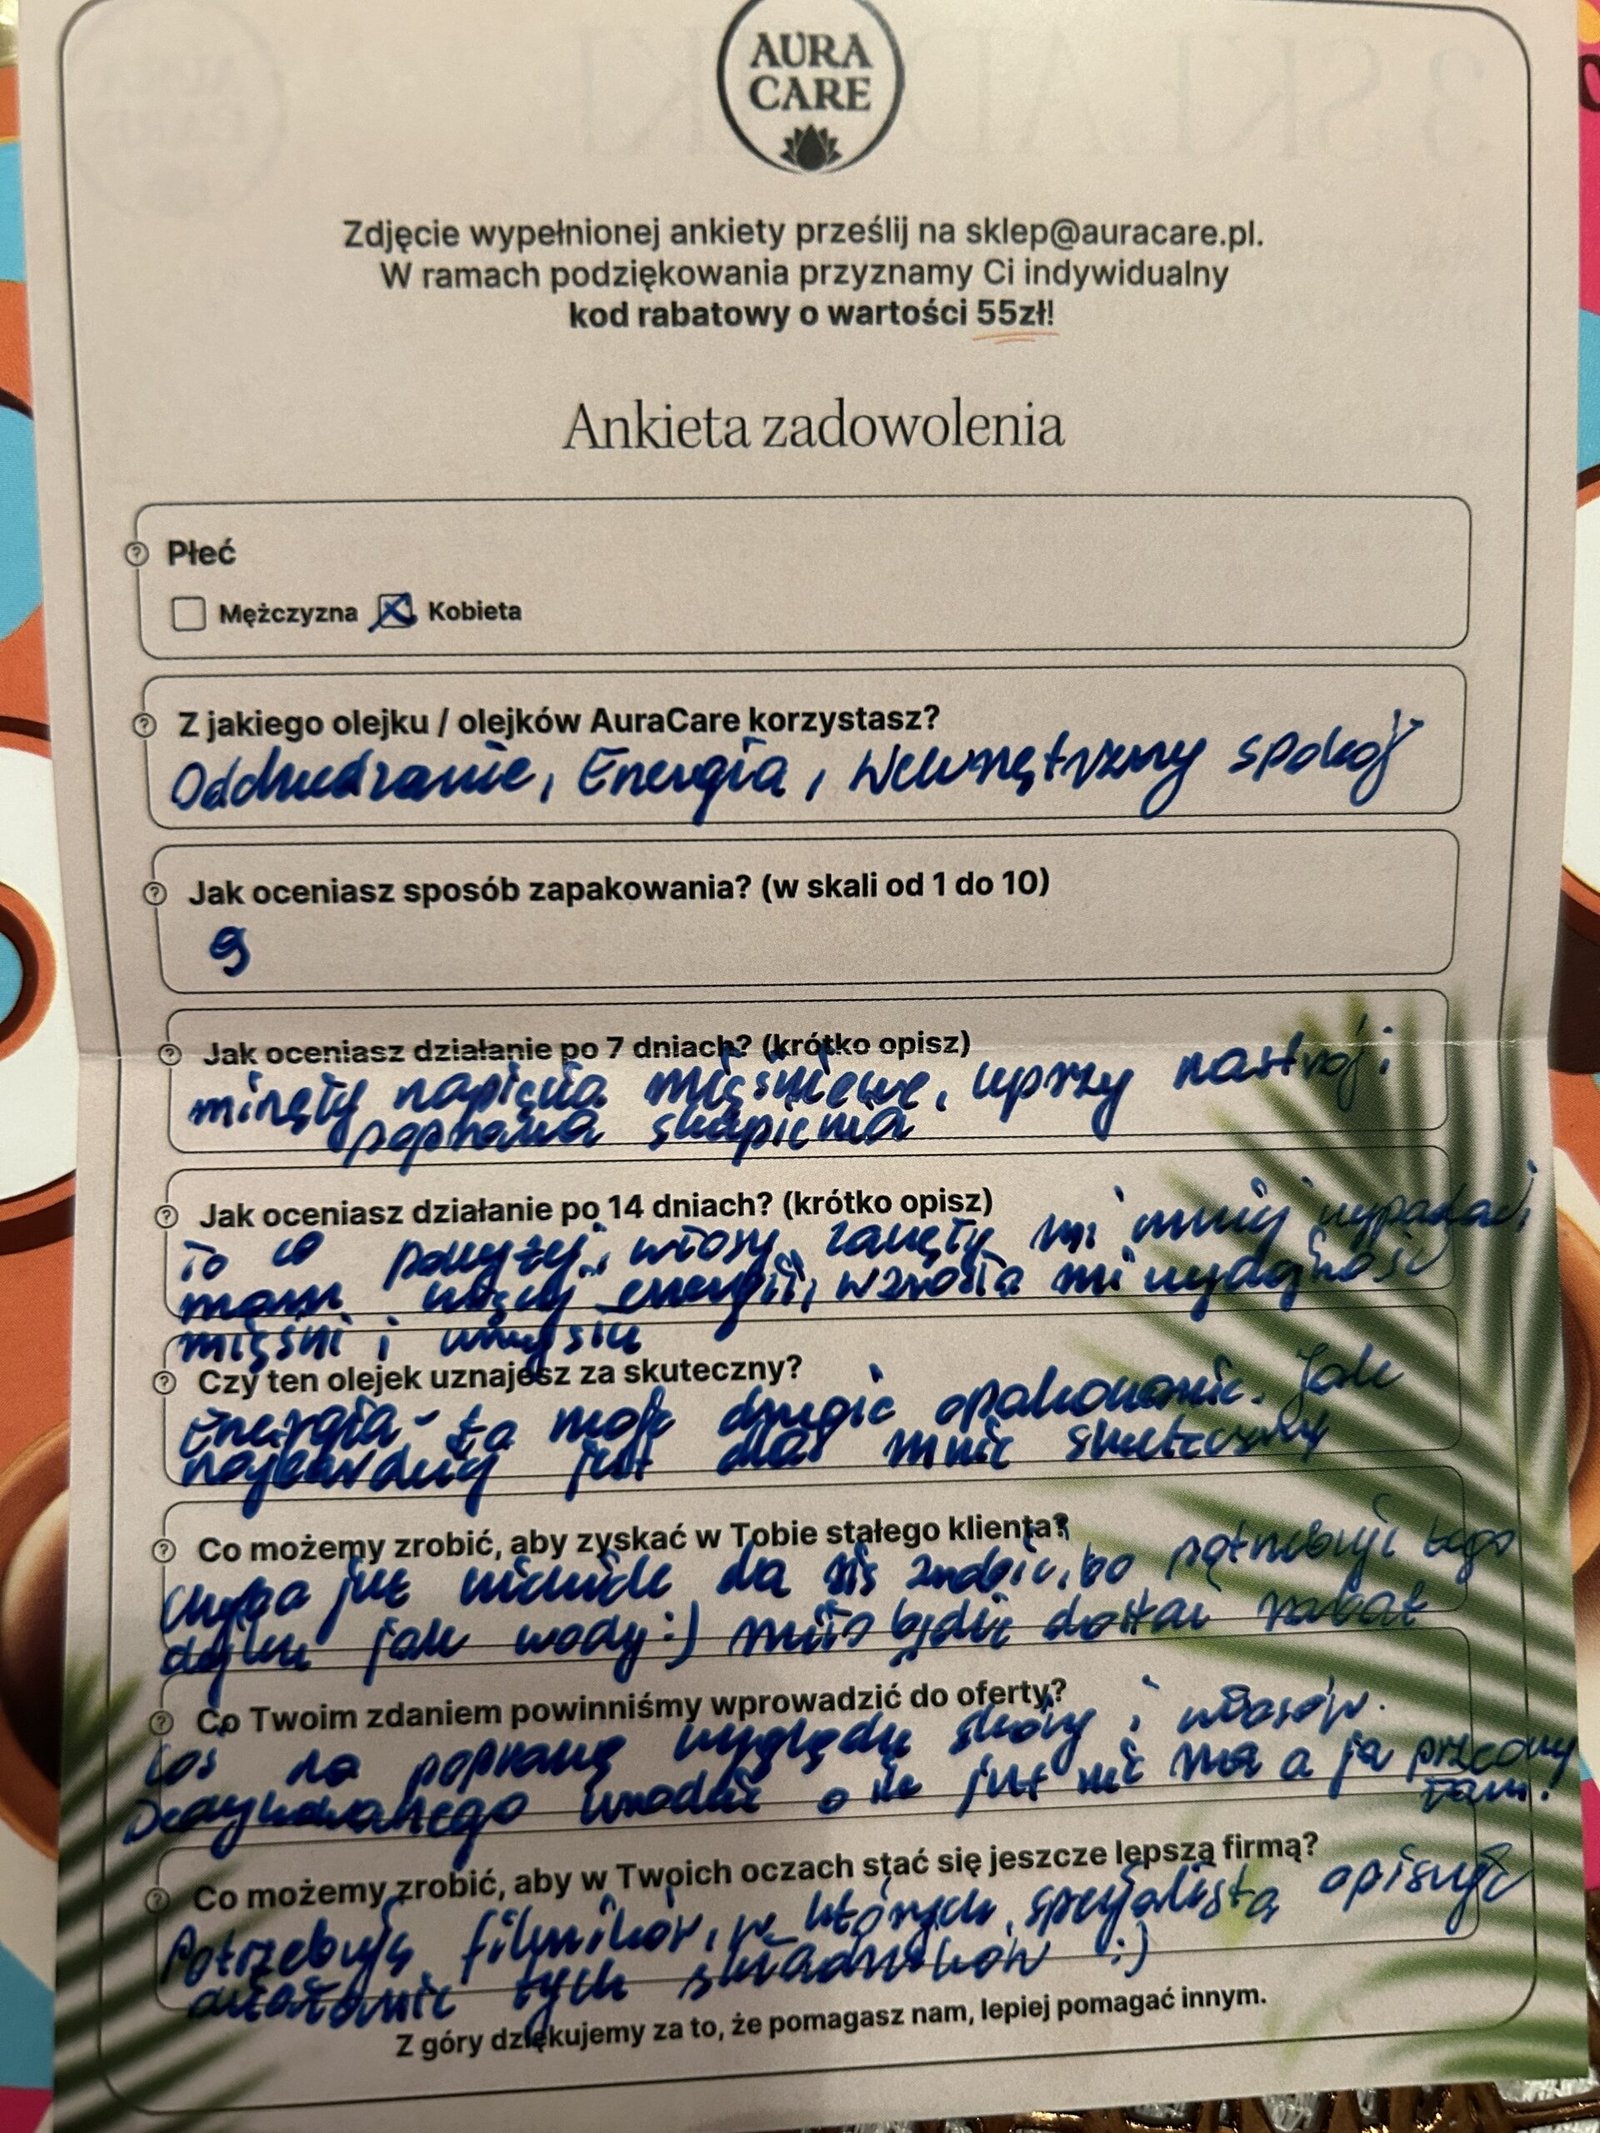 AURA
CARE
Zdjęcie wypełnionej ankiety prześlij na sklep@auracare.pl.
W ramach podziękowania przyznamy Ci indywidualny
kod rabatowy o wartości 55zł!
Ankieta zadowolenia
Płeć
Mężczyzna Kobieta
Z jakiego olejku / olejków AuraCare korzystasz?
Odchudzanie, Energia, Wewnętrzny spokój
Jak oceniasz sposób zapakowania? (w skali od 1 do 10)
9
Jak oceniasz działanie po 7 dniach? (krótko opisz)
minęły napięcia mięśniowe, lepszy nastrój i
poprawa skupienia
Jak oceniasz działanie po 14 dniach? (krótko opisz)
To co powyżej i włosy zaczęły mi mniej wypadać,
mam więcej energii, wzrosła mi wydajność
mięśni i umysłu
Czy ten olejek uznajesz za skuteczny?
Energia - to moje drugie opakowanie. Jak
najbardziej jest dla mnie skuteczny
Co możemy zrobić, aby zyskać w Tobie stałego klienta?
Chyba już niewiele da się zrobić, bo potrzebuję tego
olejku jak wody :) miło będzie dostać rabat
Co Twoim zdaniem powinniśmy wprowadzić do oferty?
Coś na poprawę wyglądu skóry i włosów.
Dedykowanego urodzie o ile już nie ma a ja przeoczy
łam.
Co możemy zrobić, aby w Twoich oczach stać się jeszcze lepszą firmą?
Potrzebuję filmików, w których specjalista opisuje
działanie tych składników :)
Z góry dziękujemy za to, że pomagasz nam, lepiej pomagać innym.